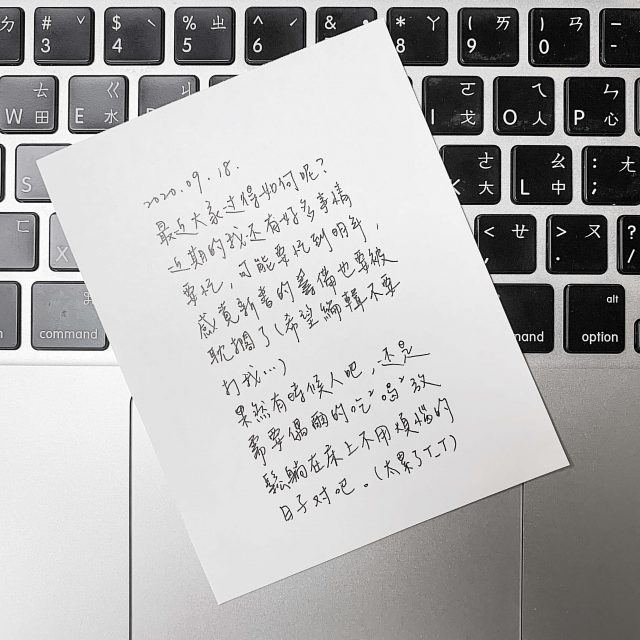 # ˇ
3
$ ˋ
4
% ㄓ
5
^ ˊ
6
&
* ㄚ
8
( ㄞ
9
) ㄢ
0
ㄊ
W 田
ㄍ
E 水
ㄐ
ㄛ
I 戈
ㄟ
O 人
ㄣ
P 心
S
ㄜ
K 大
ㄠ
L 中
: ㄤ
;
ㄌ
X
< ㄝ
,
> ㄡ
.
?
/
command
alt
option
2020.09.18.
最近大家过得如何呢?
近期的我还有好多事情
要忙,可能要忙到明年,
感覺新書的籌備也要被
耽擱了(希望編輯不要
打我...)
果然有時候人吧,还是
需要偶爾的吃〃喝〃放
鬆躺在床上不用煩惱的
日子对吧。(太累了T_T)